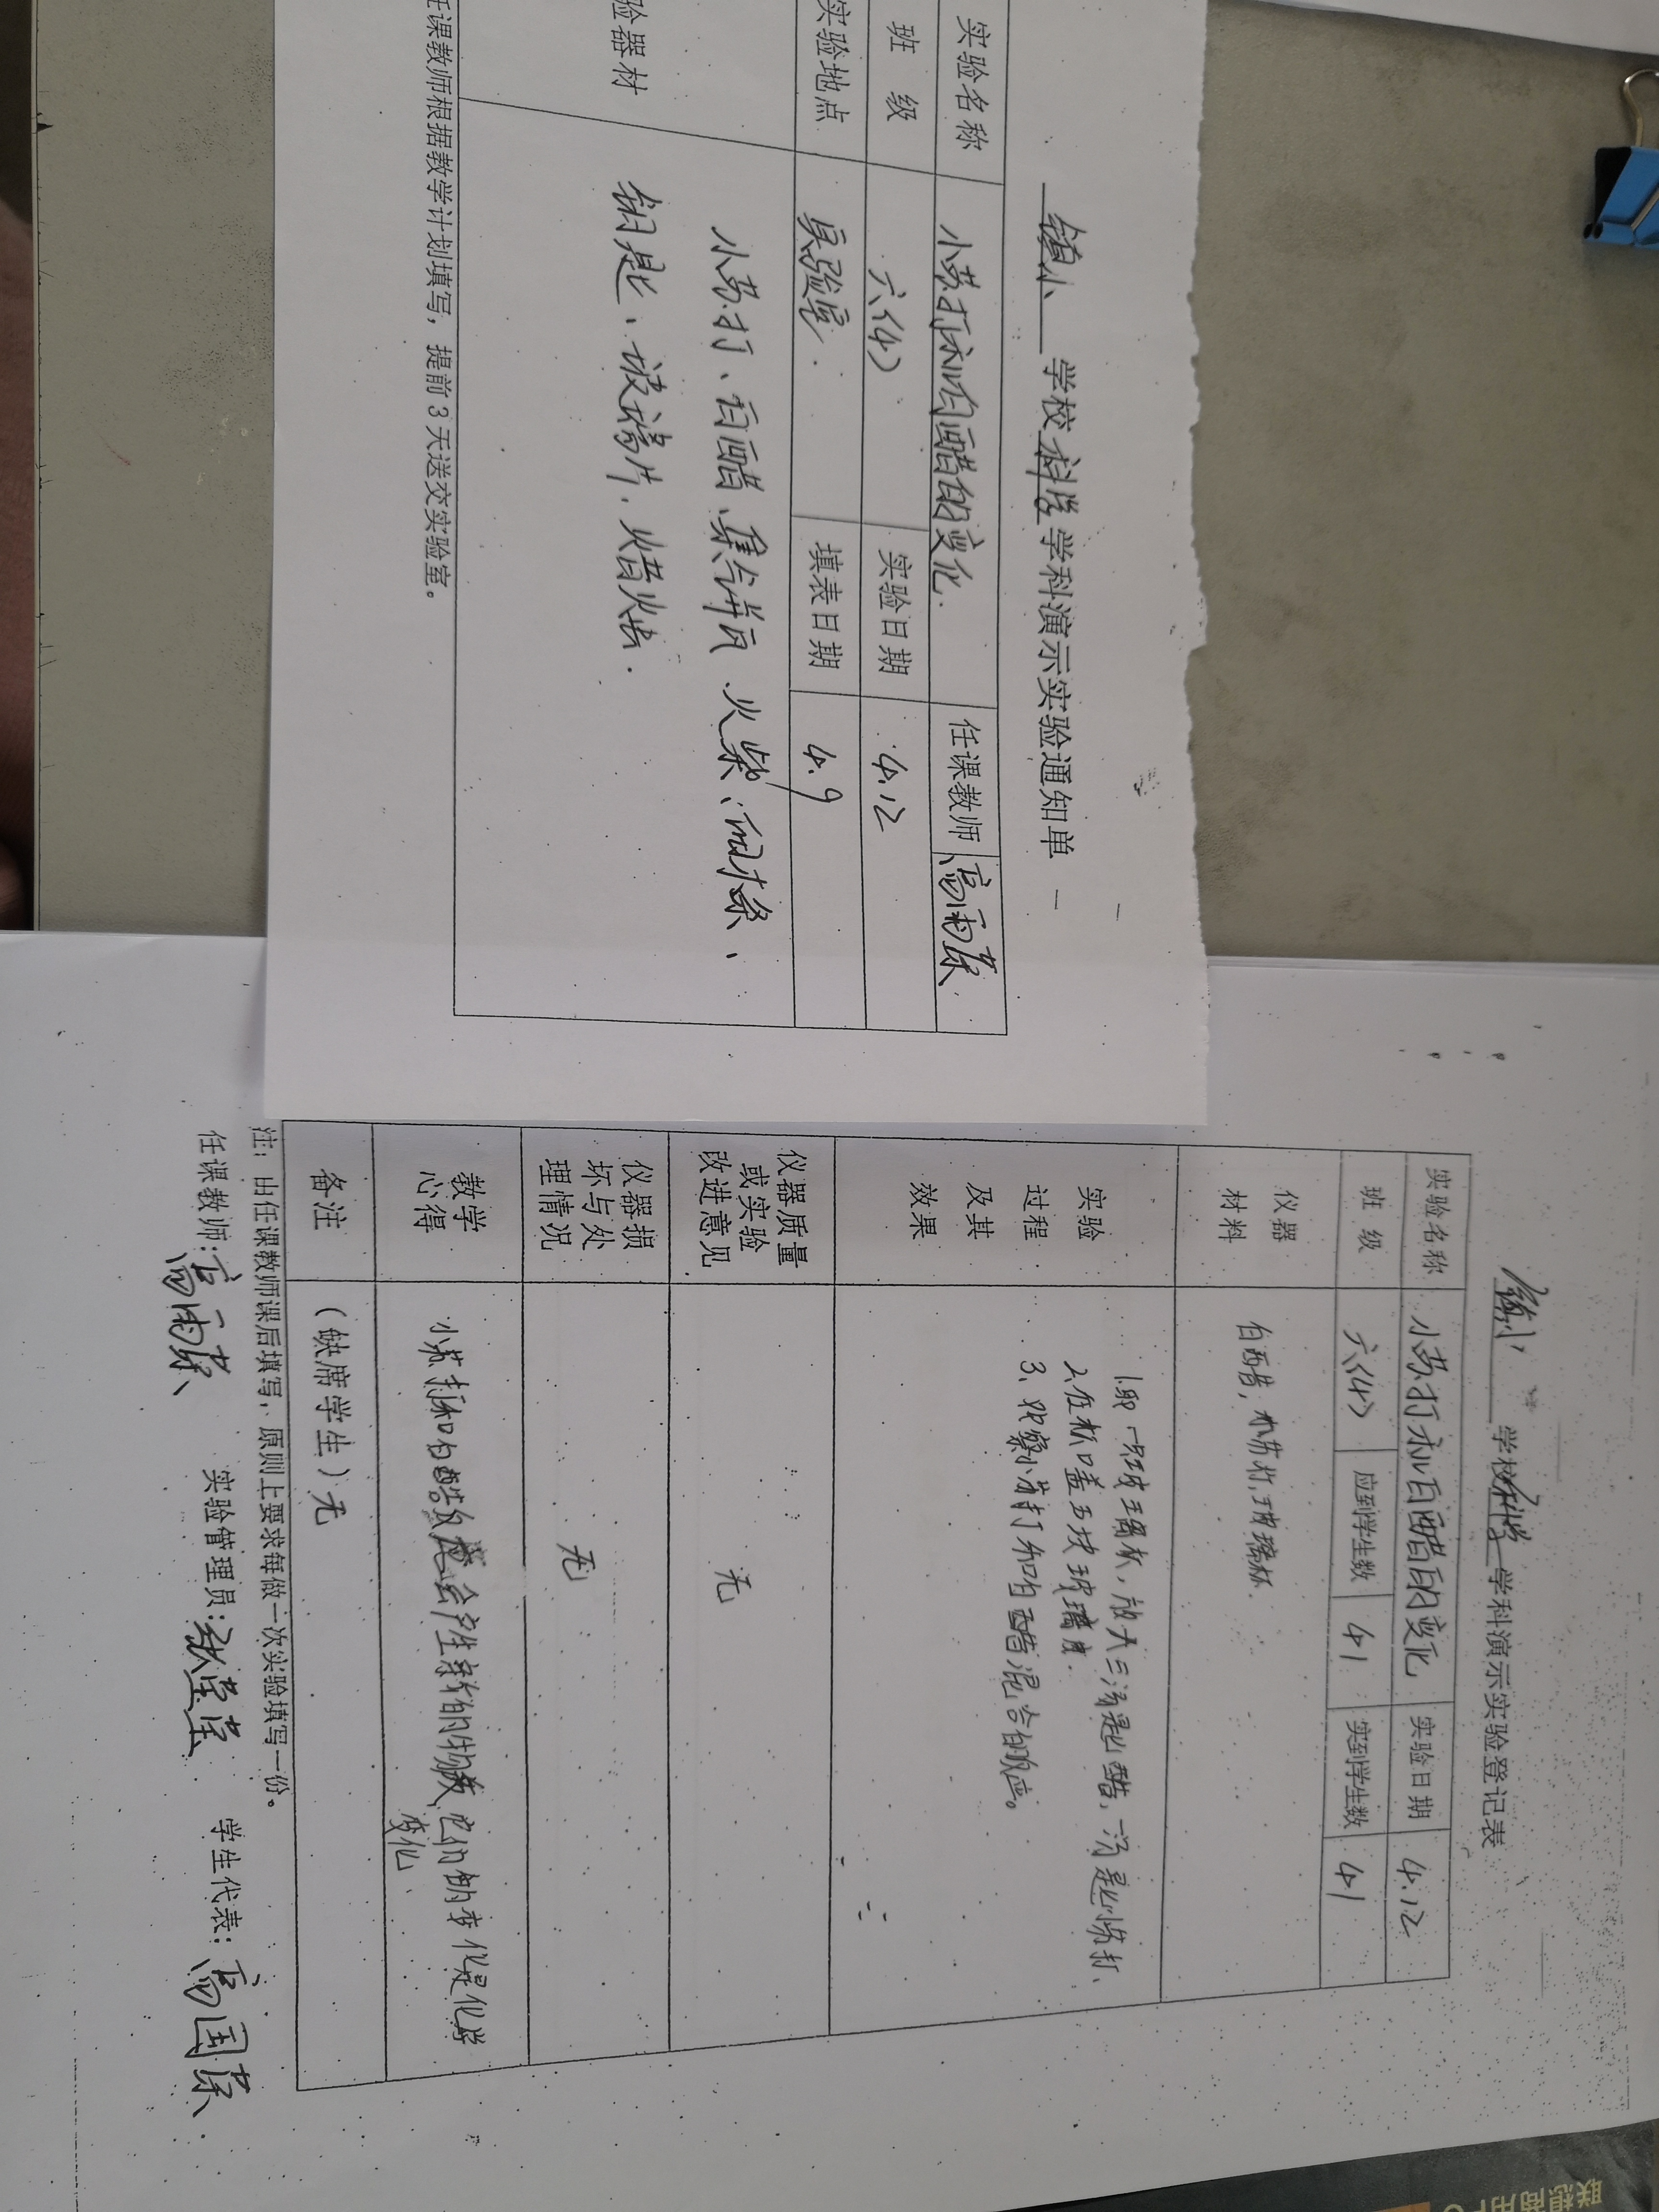 镇小 学校 科学 学科演示实验通知单
实验名称 小苏打和白醋的变化. 任课教师 高雨荪
班 级 六(4) 实验日期 4.12
实验地点 实验室. 填表日期 4.9
验器材 小苏打、白醋、集气瓶 火柴、细木条、
钥匙、玻璃片、蜡烛.
任课教师根据教学计划填写，提前3天送交实验室。
镇小 学校 科学 学科演示实验登记表
实验名称 小苏打和白醋的变化 实验日期 4.12
班 级 六(4) 应到学生数 41 实到学生数 41
仪器材料 白醋，小苏打，玻璃杯.
实验过程及其效果 1.取一只玻璃杯，放大三汤匙醋，一汤匙小苏打、
2.在杯口盖上块玻璃片.
3、观察小苏打和白醋混合的反应。
仪器质量或实验改进意见 无
仪器损坏与处理情况 无
教学心得 小苏打和白醋反应会产生新的物质 它们的变化是化学
变化、
备注 （缺席学生）无
注：由任课教师课后填写，原则上要求每做一次实验填写一份。
任课教师：高雨荪 实验管理员：张莹莹 学生代表：高国荪
联想商用PC